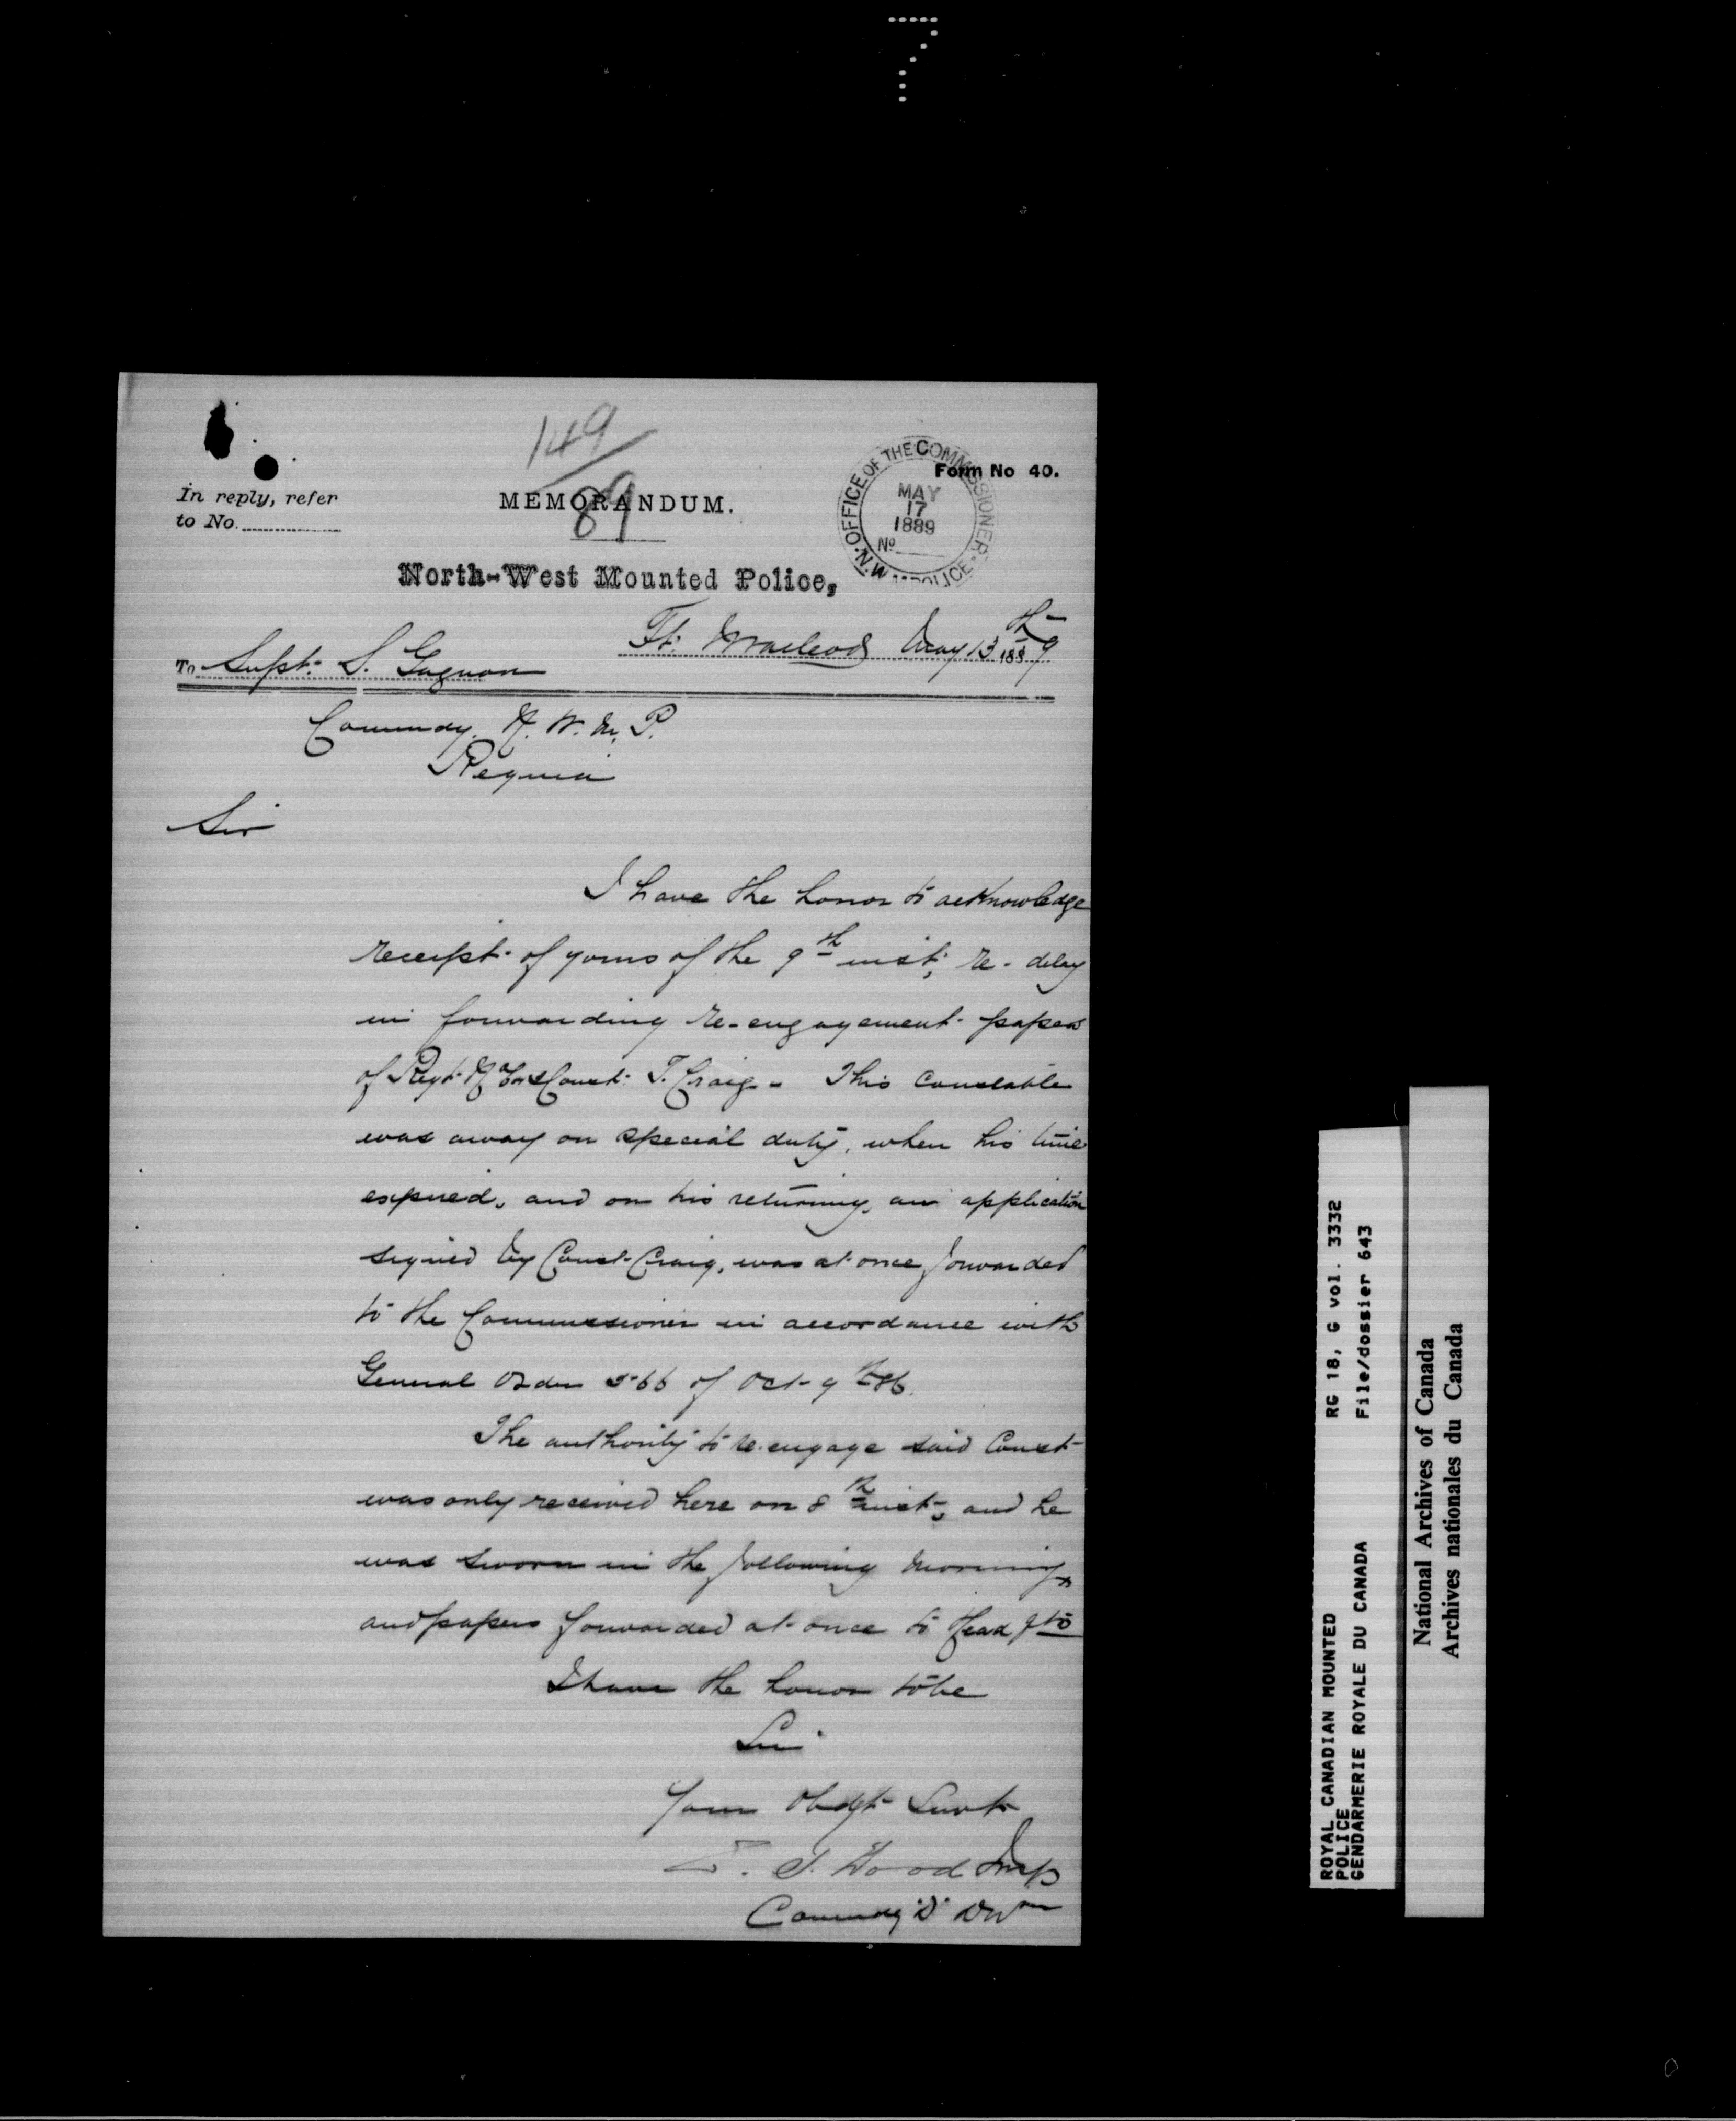 7
149
89
Form No 40.
In reply, refer
to No.
MEMORANDUM.
OFFICE OF THE COMMISSIONER
MAY
17
1889
No
North-West Mounted Police,
Ft. Macleod May 13th 1889
To Supt. S. Gagnon
Commdg. N. W. M. P.
Regina
Sir
I have the honor to acknowledge
receipt of yours of the 9th inst, re-delay
in forwarding re-engagement papers
of Regt. No Const. T. Craig - This Constable
was away on special duty, when his time
expired, and on his returning, an application
signed by Const. Craig, was at once forwarded
to the Commissioner in accordance with
General Order 566 of Oct 9th 86.
The authority to re-engage said Const
was only received here on 8th inst, and he
was sworn in the following morning,
and papers forwarded at once to Head Qts
I have the honor to be
Sir
Your Obdgt Servt
Z. T. Wood Insp
Commdg "D" Divn
ROYAL CANADIAN MOUNTED RG 18, G vol. 3332
POLICE
GENDARMERIE ROYALE DU CANADA File/dossier 643
National Archives of Canada
Archives nationales du Canada